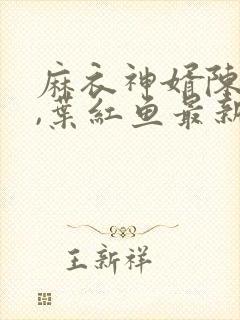 麻衣神婿陳
,葉紅鱼最新
王新祥